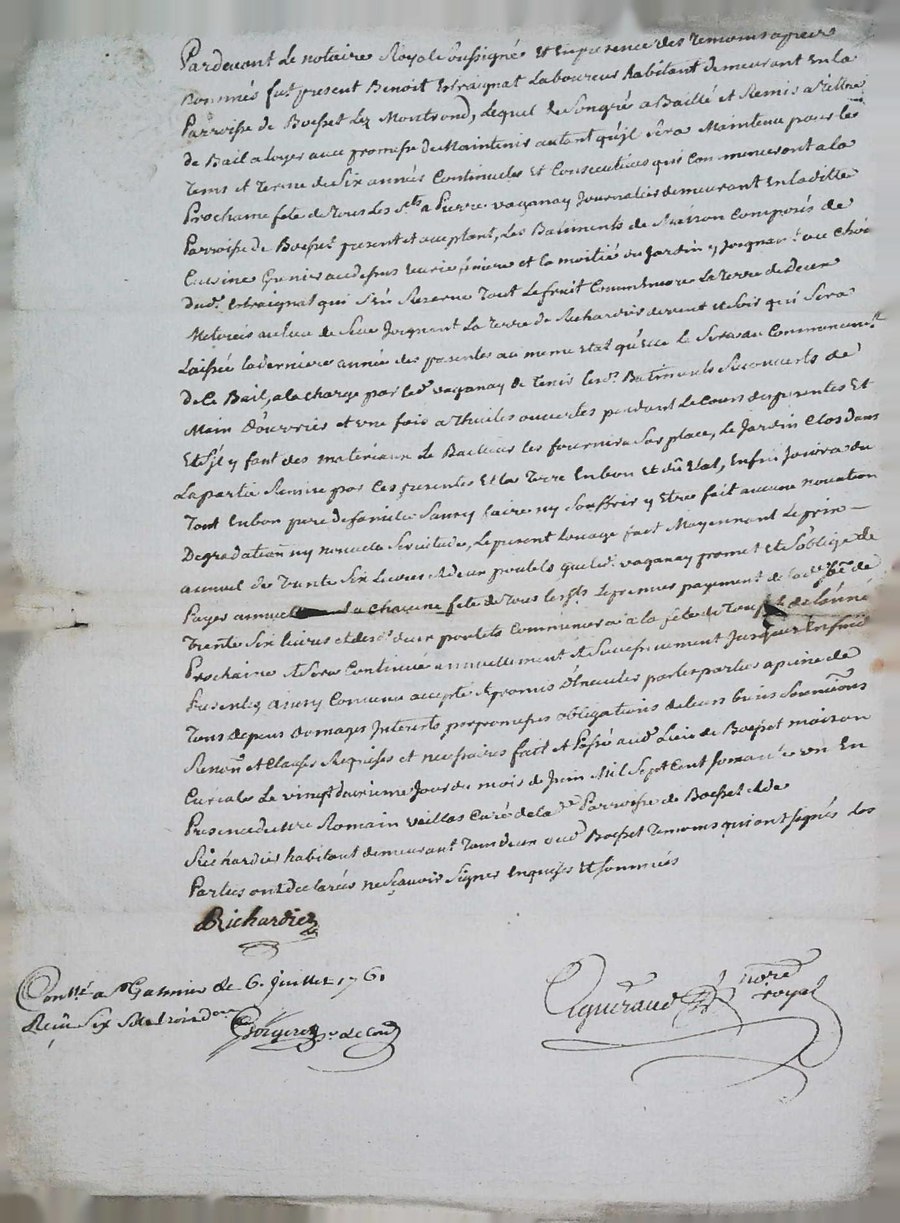 Pardevant Le notaire Royal soussigné Et En presence des temoins apres
nommés fut present Benoit Laboureur habitant demeurant En la
Parroisse de Boisset Lez Montrond, Lequel de son gré a Baillé et Remis a Tittre
de Bail a loyer avec promesse de Maintenir autant qu'jl sera Maintenu pour les
Tems et Terme de Six années Continuelles Et Consecutives qui Commenceront a la
Prochaine fete de tous Les Sts a Pierre vaganay Journalier demeurant En la ditte
Parroisse de Boisset present et acceptant, Les Batiments de Maison Composés de
Cuisine Grenier au dessus et la moitié du Jardin y Joignant au Choix
dud. qui s'est Reservé Tout Le fruit La Terre de Deux
Meterées Joignant La terre de Richardier
Laissée la derniere année des presentes au meme Etat qu'elle Le Sera au Commencemt
de Ce Bail, a la charge par led. vaganay de Tenir lesd. Batiments Recouverts de
Main D'ouvrier et une fois a Thuiles ouvertes pendant Le Cours des presentes Et
Et S'jl y faut des materiaux Le Bailleur les fournira Sur place, Le Jardin Clos dans
La partie Remise par Ces presentes Et la Terre En bon Et dû Etat, Enfin Jouira du
Tout En bon pere de famille Sans y faire ny Souffrir y Etre fait aucune novation
Degradation ny nouvelle Servitude, Le present Louage fait Moyennant Le prix
annuel de Trente Six Livres et deux poulets que led. vaganay promet Et S'oblige de
Payer a Chacune fete de Tous les Sts Le premier payement de lad. Ste de
Trente Six livres et desd. deux poulets Commencera a la fete de Touts de l'anné
Prochaine Et Sera Continué annuellement Et Successivement Jusques En fin des
Presentes, ainsy Convenu accepté Et promis D'Executer par les parties a peine de
Tous depens domages Interets par promesses obligations de leurs biens Soumissions
Renon. et Clauses Requises et necessaires fait Et Passé aud. Lieu de Boisset maison
Curiale Le vingt deuxieme Jour du mois de Juin Mil Sept Cent Soixante un En
Presence de Mre Romain veillas Curé de lad. Parroisse de Boisset Et de
Richardier habitant demeurant aud. Boisset Temoins qui ont Signés Les
Parties ont declarées ne Sçavoir Signer Enquises Et Sommées
Richardier
Conllé a St Galmier le 6. Juillet 1761
Reçu Six Sols trois der
Aguiraud nore royal